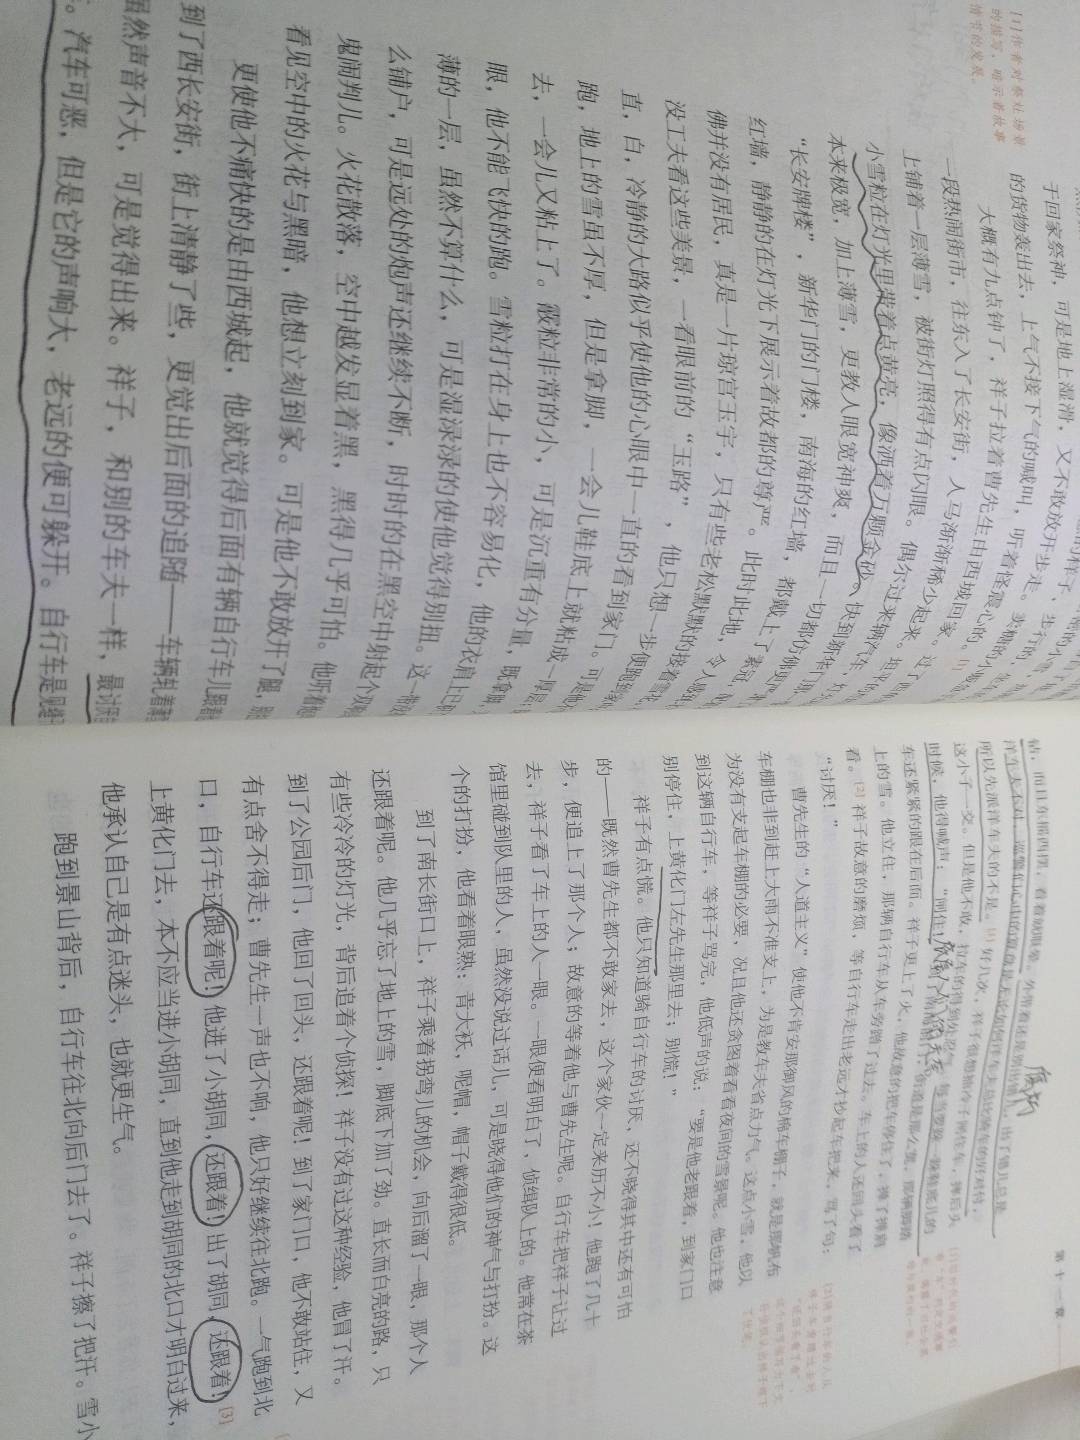 [1]作者对祭灶场景
的描写，暗示着故事
情节的发展。
于回家祭神，可是地上湿滑，又不敢放开步走。
的货物轰出去，上气不接下气的喊叫，听着怪震心的。[1]
大概有九点钟了，祥子拉着曹先生由西城回家。
一段热闹街市，往东入了长安街，人马渐渐稀少起来。
上铺着一层薄雪，被街灯照得有点闪眼。偶尔过来辆汽车，
小雪粒在灯光里带着点黄亮，像洒着万颗金砂。快到新华门
本来极宽，加上薄雪，更教人眼宽神爽，而且一切都仿佛
“长安牌楼”，新华门的门楼，南海的红墙，都戴上了素冠，
红墙，静静的在灯光下展示着故都的尊严。此时此地，令人
佛并没有居民，真是一片琼宫玉宇，只有些老松默默的接着
没工夫看这些美景，一看眼前的“玉路”，他只想一步便跑到
直，白，冷静的大路似乎使他的心眼中一直的看到家门。可是他
跑，地上的雪虽不厚，但是拿脚，一会儿鞋底上就粘成一厚层
去，一会儿又粘上了。霰粒非常的小，可是沉重有分量，既拿脚
眼，他不能飞快的跑。雪粒打在身上也不容易化，他的衣肩上已
薄的一层，虽然不算什么，可是湿渌渌的使他觉得别扭。这一带
么铺户，可是远处的炮声还继续不断，时时的在黑空中射起个双响
鬼闹判儿。火花散落，空中越发显着黑，黑得几乎可怕。他听着炮
看见空中的火花与黑暗，他想立刻到家。可是他不敢放开了腿，别
更使他不痛快的是由西城起，他就觉得后面有辆自行车儿跟着
到了西长安街，街上清静了些，更觉出后面的追随——车辆轧着
虽然声音不大，可是觉得出来。祥子，和别的车夫一样，最讨厌
车。汽车可恶，但是它的声响大，老远的便可躲开。自行车是见缝
第十一章
钻，而且东摇西摆，看着就眼晕。外带着还是别出错儿，出了错儿总是
洋车夫不对，巡警们心中的算盘是无论如何洋车夫总比骑车的好对付，
所以先派洋车夫的不是。好几次，祥子很想抽冷子闸住车，摔后头
这小子一交。但是他不敢，拉车的得到处忍气。每当要跺一跺鞋底儿的
时候，他得喊声：“闸住！”
车还紧紧的跟在后面。祥子更上了火，他故意的把车停住了，掸了掸肩
上的雪。他立住，那辆自行车从车旁蹭了过去。车上的人还回头看了
看。[2]祥子故意的磨烦，等自行车走出老远才抄起车把来，骂了句：
“讨厌！”
曹先生的“人道主义”使他不肯安那御风的棉车棚子，就是那帆布
车棚也非到赶上大雨不准支上，为是教车夫省点力气。这点小雪，他以
为没有支起车棚的必要，况且他还贪图着看看夜间的雪景呢。他也注意
到这辆自行车，等祥子骂完，他低声的说：“要是他老跟着，到家门口
别停住，上黄化门左先生那里去；别慌！”
祥子有点慌。他只知道骑自行车的讨厌，还不晓得其中还有可怕
的——既然曹先生都不敢家去，这个家伙一定来历不小！他跑了几十
步，便追上了那个人；故意的等着他与曹先生呢。自行车把祥子让过
去，祥子看了车上的人一眼。一眼便看明白了，侦缉队上的。他常在茶
馆里碰到队里的人，虽然没说过话儿，可是晓得他们的神气与打扮。这
个的打扮，他看着眼熟：青大袄，呢帽，帽子戴得很低。
到了南长街口上，祥子乘着拐弯儿的机会，向后溜了一眼，那个人
还跟着呢。他几乎忘了地上的雪，脚底下加了劲。直长而白亮的路，只
有些冷冷的灯光，背后追着个侦探！祥子没有过这种经验，他冒了汗。
到了公园后门，他回了回头，还跟着呢！到了家门口，他不敢站住，又
有点舍不得走；曹先生一声也不响，他只好继续往北跑。一气跑到北
口，自行车还跟着呢！他进了小胡同，还跟着！出了胡同，还跟着！[3]
上黄化门去，本不应当进小胡同，直到他走到胡同的北口才明白过来，
他承认自己是有点迷头，也就更生气。
跑到景山背后，自行车往北向后门去了。祥子擦了把汗。雪小